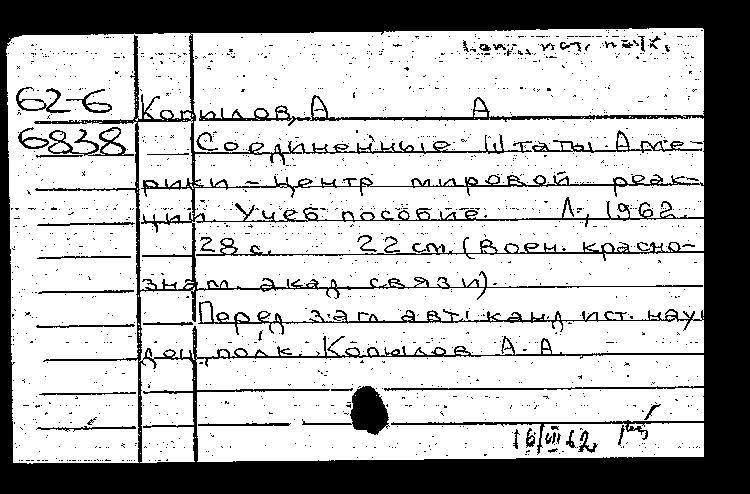 ист. наук.
62-6 Копылов, А А
6838 Соединенные Штаты Аме-
рики - центр мировой реак-
ции. Учеб пособие. Л., 1962.
28 с. 22 см. (Воен. красно-
знам. акад. связи).
Перед загл. авт: канд ист. наук
доц., полк. Копылов А. А.
16/VII 62.